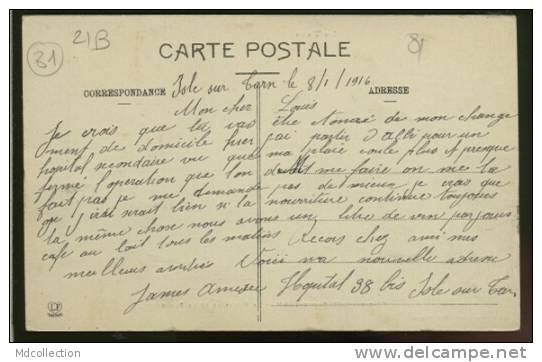 21B
31
81
CARTE POSTALE
CORRESPONDANCE
ADRESSE
Isle sur Tarn le 8/1/1916
Mon cher Louis
Je crois que tu vas être étonné de mon change
ment de domicile hier j'ai partir d'Albi pour un
hopital secondaire vu que ma plaie coule plus et presque
fermé l'operation que l'on me faire on me la
fait pas je me demande pas de mieux je crois que
je serait bien si la nourriture continue toujours
la même chose nous avons un litre de vin par jours
café au lait tous les matins Recois cher ami mes
meilleurs amitiés Voici ma nouvelle adresse
James Amedée Hopital 38 bis Isle sur Tarn
Mdcollection
www.delcampe.net